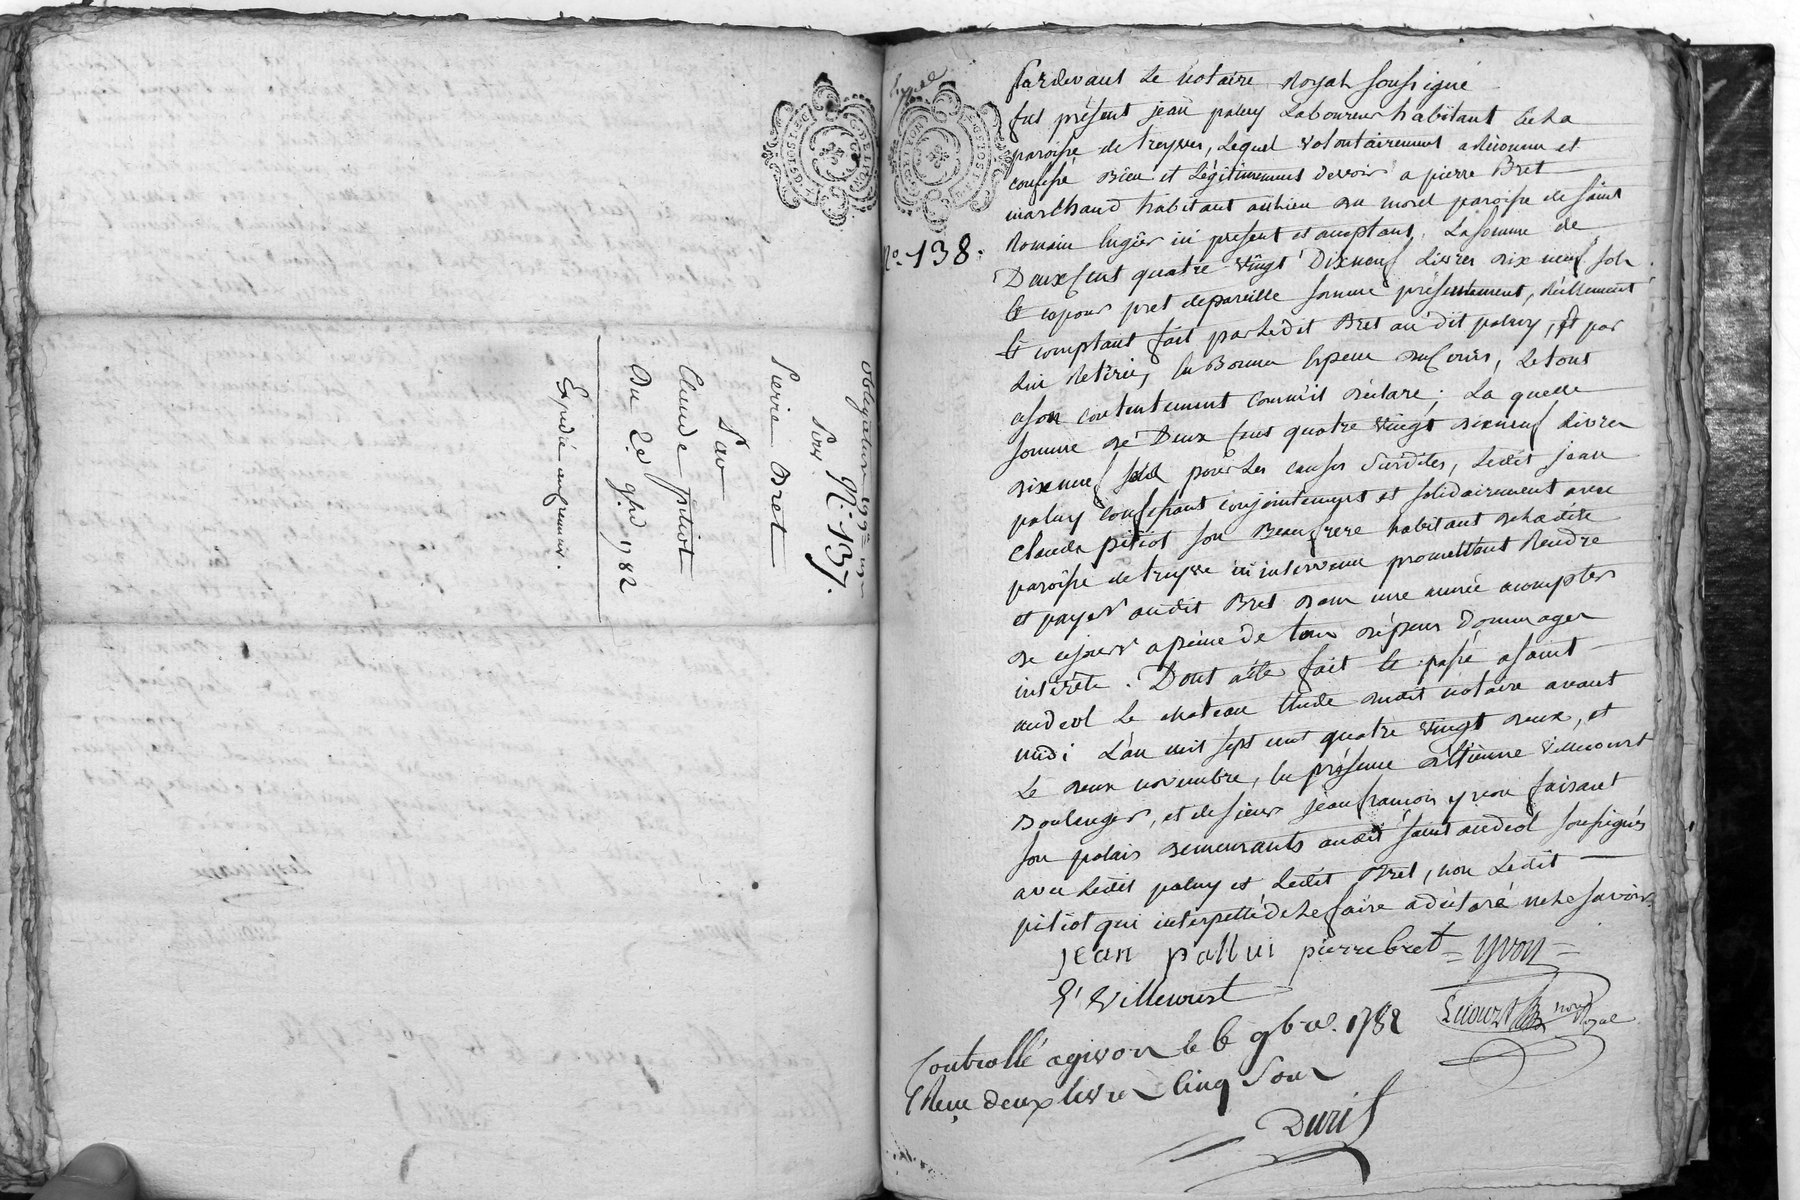 obligation
Pour N.° 137.
Pierre Bret
Par
Claude pitiot
Du 2.e 9bre 1782
Expedié au premier.
N.° 138.
Pardevant le notaire Royal soussigné
fut présent jean paluy Laboureur habitant de la
paroisse de treyves, Lequel volontairement a Reconnu et
confessé Bien et Légitimement devoir a pierre Bret
marchand habitant au lieu du morel paroisse de saint
Romain ici present et acceptant, La somme de
Deux Cent quatre vingt Dixneuf Livres dix neuf sols
et ce pour pret de pareille somme présentement, réellement
et comptant fait par Ledit Bret au dit paluy, et par
lui Retirée, en Bonnes Espece du Cours, Le tout
a son contentement comm'il déclare; La quelle
somme de Deux Cent quatre vingt dixneuf Livres
dixneuf sols pour Les causes susdites, Ledit jean
paluy confessant conjointement et solidairement avec
Claude pitiot son Beaufrere habitant de la dite
paroisse de treyve ici intervenu promettent Rendre
et payer audit Bret dans une année a compter
de ce jour a peine de tous dépens Dommages
intérêts. Dont acte fait et passé a saint
andeol Le chateau Etude dudit notaire avant
midi L'an mil sept cent quatre vingt deux, et
Le deux novembre, en présence d'Etienne Villecourt
Boulanger, et de sieur jean francois yvon faisant
son palais demeurants audit saint andeol soussignés
avec Ledit paluy et Ledit Bret, non Ledit
pitiot qui interpellé de Le faire a déclaré ne Le savoir.
jean pallui pierre bret = yvon =
E. Villecourt
not. Royal
Controllé a givors le 6 9bre. 1782
Reçu deux livres Cinq Sous
Duril